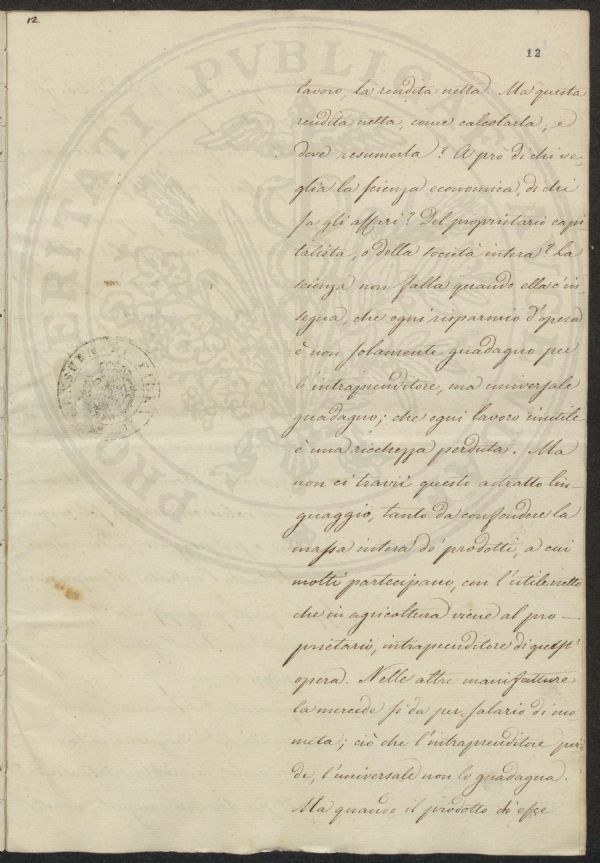 12
12
lavoro, la rendita netta. Ma questa
rendita netta, come calcolarla, e
dove resumerla? A prò di chi ve,
glia la scienza economica, di chi
fa gli affari? Del proprietario capi
talista, o della società intera? La
scienza non falla quando ella c'in
segna, che ogni risparmio d'opera
è non solamente guadagno per
l'intraprenditore, ma universale
guadagno; che ogni lavoro inutile
è una ricchezza perduta. Ma
non ci travii questo astratto lin
guaggio, tanto da confondere la
massa intera de' prodotti, a cui
molti partecipano, con l'utile netto
che in agricoltura viene al pro-
prietario, intraprenditore di quest'
opera. Nelle altre manifatture
la mercede si da per salario di mo
neta; ciò che l'intraprenditore per,
de, l'universale non lo guadagna.
Ma quando il prodotto di esse
PUBLICA